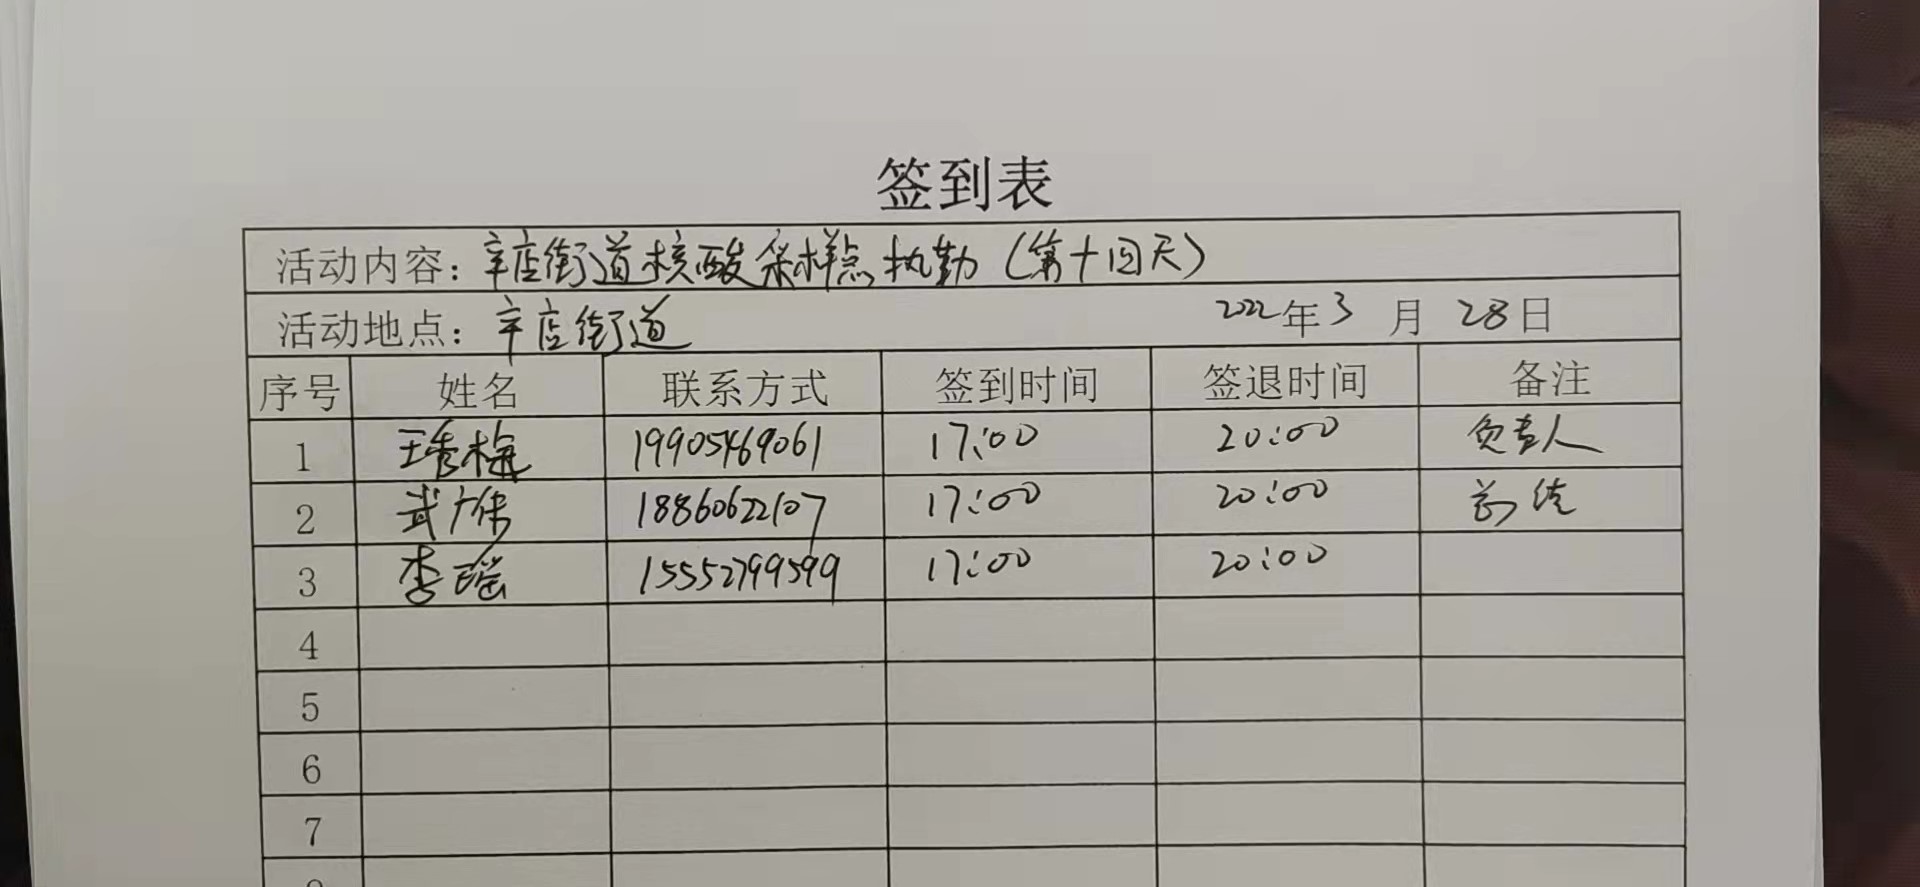 签到表
活动内容：辛店街道核酸采样点执勤（第十四天）
活动地点：辛店街道 2022年3月28日
序号 姓名 联系方式 签到时间 签退时间 备注
1 19905469061 17:00 20:00 负责人
2 武广伟 18860622107 17:00 20:00
3 李瑶 15552799599 17:00 20:00
4
5
6
7